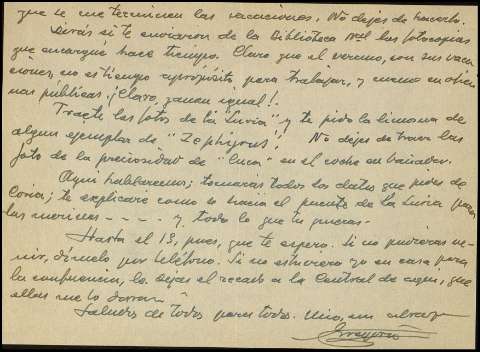 que se me terminen las vacaciones. No dejes de hacerlo.
Dirás si te enviaron de la Biblioteca Nal las fotocopias
que encargué hace tiempo. Claro que el verano, con sus vaca
ciones, no es tiempo apropósito para trabajar, y menos en ofici
nas públicas. ¡Claro, ganan igual!.
Traete las fotos de la "Luria" y te pido la limosna de
algun ejemplar de "Zephyrus". No dejes de traer las
foto de la preciosidad de "Cuca" en el coche en bañador.
Aquí hablaremos; tomarás todos los datos que pides de
Coria; te explicaré como se hacía el puente de La Luria para
las merinas - - - - y todo lo que tu quieras.-
Hasta el 13, pues, que te espero. Si no pudieras ve-
nir, dímelo por teléfono. Si no estuviera yo en casa para
la conferencia, lo dejas el recado a la Central de aquí, que
ellas me lo darán.
Saludos de todos para todos. Uno, un abrazo
Gregorio